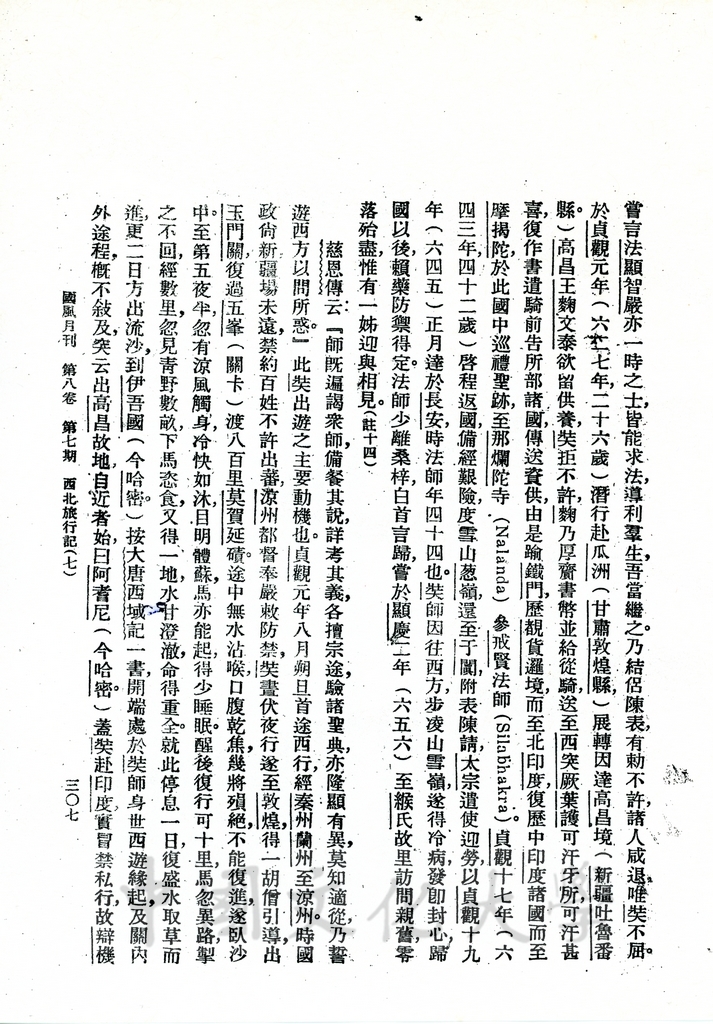 嘗言法顯智嚴亦一時之士皆能求法導利羣生吾當繼之乃結侶陳表有勅不許諸人咸退唯奘不屈。
於貞觀元年(六二七年二十六歲)潛行赴瓜洲(甘肅敦煌縣)展轉因達高昌境(新疆吐魯番
縣。)高昌王麴文泰欲留供養奘拒不許麴乃厚齎書幣並給從騎送至西突厥葉護可汗牙所可汗甚
喜復作書遣騎前告所部諸國傳送資供由是踰鐵門歷覩貨邏境而至北印度復歷中印度諸國而至
摩揭陀於此國中巡禮聖跡至那爛陀寺(Nalanda)參戒賢法師(Silabhakra)。貞觀十七年(六
四三年四十二歲)啓程返國備經艱險度雪山葱嶺還至于闐附表陳請太宗遣使迎勞以貞觀十九
年(六四五)正月達於長安時法師年四十四也。奘師因往西方步凌山雪嶺遂得冷病發卽封心歸
國以後賴藥防禦得定法師少離桑梓白首言歸嘗於顯慶二年(六五六)至緱氏故里訪問親舊零
落殆盡惟有一姊迎與相見。(註十四)
慈恩傳云:『師旣遍謁衆師備餐其說詳考其義各擅宗途驗諸聖典亦隆顯有異莫知適從乃誓
遊西方以問所惑。』此奘出遊之主要動機也。貞觀元年八月朔旦首途西行經秦州蘭州至涼州。時國
政尙新疆場未遠禁約百姓不許出蕃涼州都督奉嚴敕防禁奘晝伏夜行遂至敦煌得一胡僧引導出
玉門關復過五峯(關卡)渡八百里莫賀延磧途中無水沾喉口腹乾焦幾將殞絕不能復進遂臥沙
中至第五夜半忽有涼風觸身冷快如沐目明體蘇馬亦能起得少睡眠。醒後復行可十里馬忽異路掣
之不回經數里忽見靑野數畝下馬恣食又得一地水甘澄澈命得重全。就此停息一日復盛水取草而
進更二日方出流沙到伊吾國(今哈密)。按大唐西域記一書開端處於奘師身世西遊緣起及關內
外途程槪不敍及突云出高昌故地自近者始曰阿耆尼(今哈密)。蓋奘赴印度實冒禁私行故辯機
國風月刊 第八卷 第七期 西北旅行記(七)
三〇七
中國文化大學